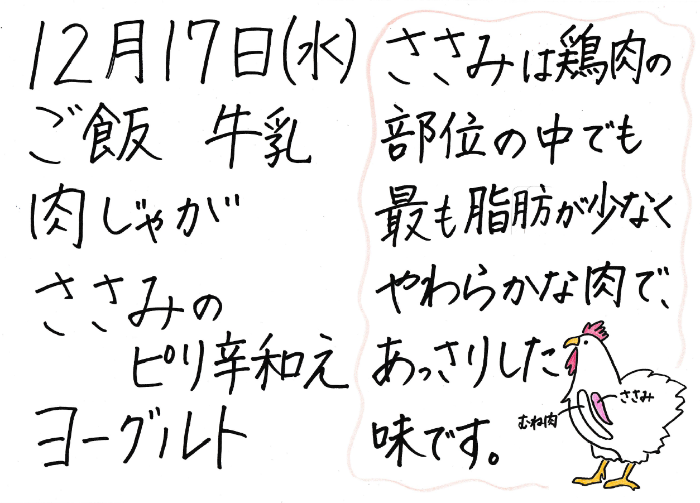 12月17日(水)
ご飯 牛乳
肉じゃが
ささみの
ピリ辛和え
ヨーグルト
ささみは鶏肉の
部位の中でも
最も脂肪が少なく
やわらかな肉で、
あっさりした
味です。
ささみ
むね肉